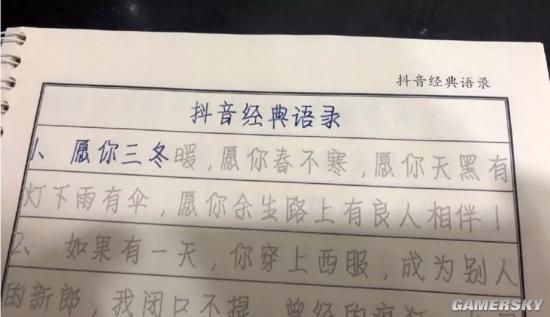 抖音经典语录
抖音经典语录
1、愿你三冬暖，愿你春不寒，愿你天黑有
灯下雨有伞，愿你余生路上有良人相伴！
2、如果有一天，你穿上西服，成为别人
的新郎，我闭口不提，曾经的疯狂
GAMERSKY